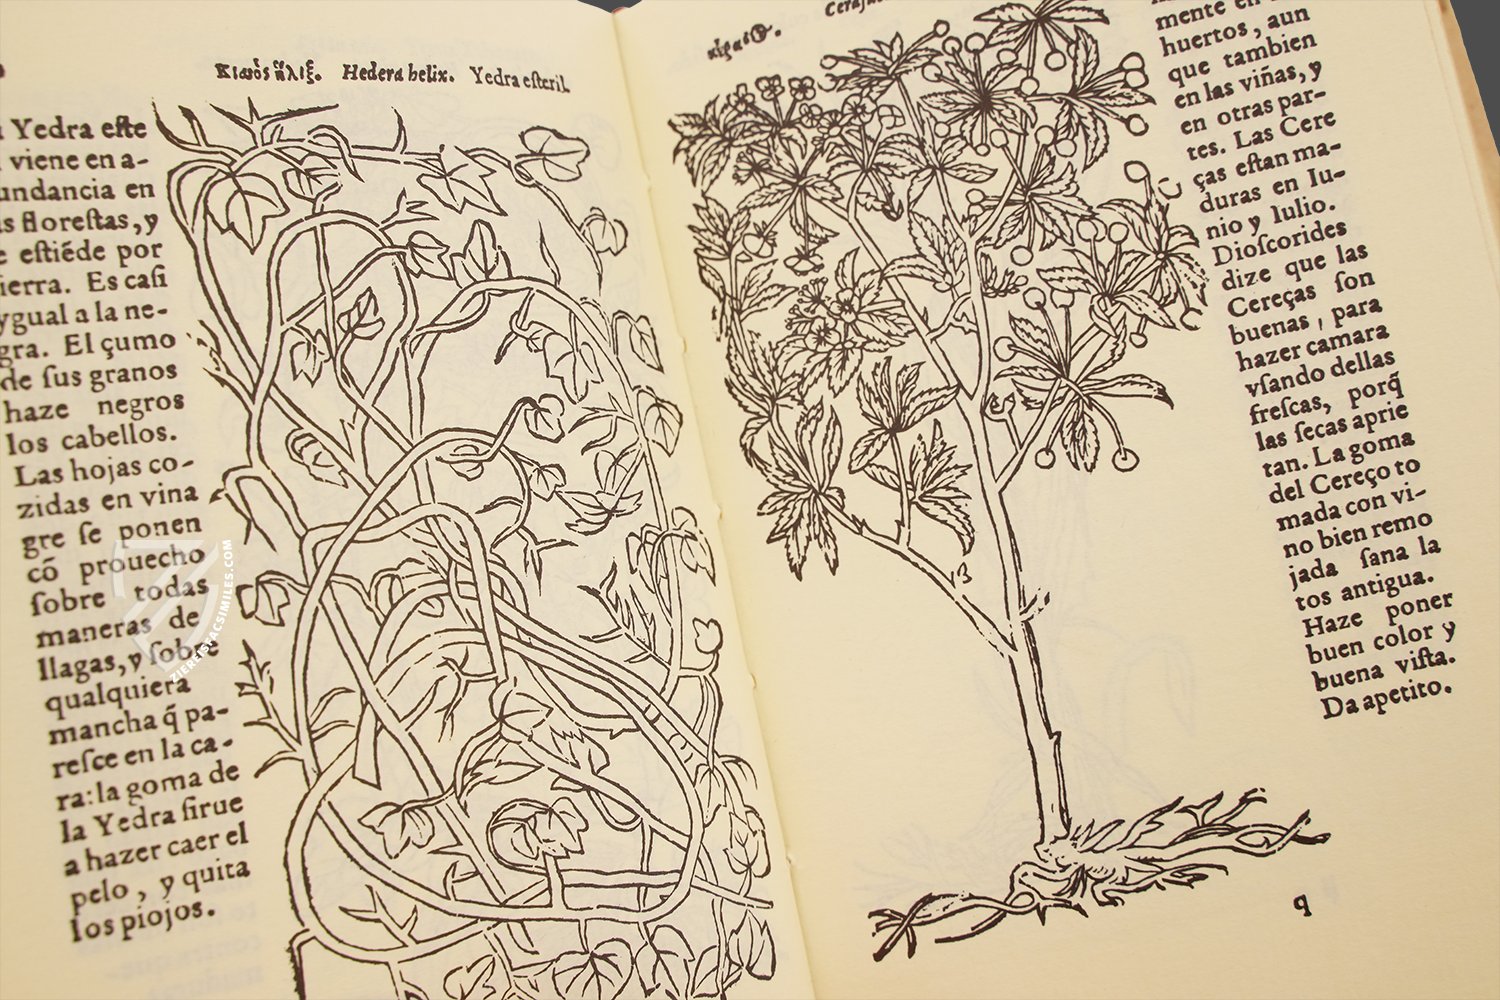 Κισσὸς ἕλιξ. Hedera helix. Yedra eſteril.
Yedra eſte
viene en a-
undancia en
as floreſtas, y
e eſtiẽde por
ierra. Es caſi
ygual a la ne-
gra. El çumo
de ſus granos
haze negros
los cabellos.
Las hojas co-
zidas en vina
gre ſe ponen
cõ prouecho
ſobre todas
maneras de
llagas, y ſobre
qualquiera
mancha q̃ pa-
reſce en la ca-
ra: la goma de
la Yedra ſirue
a hazer caer el
pelo, y quita
los piojos.
ZIEREISFACSIMILES.COM
mente en
huertos, aun
que tambien
en las viñas, y
en otras par-
tes. Las Cere
ças eſtan ma-
duras en Iu-
nio y Iulio.
Dioſcorides
dize que las
Cereças ſon
buenas, para
hazer camara
vſando dellas
freſcas, porq̃
las ſecas aprie
tan. La goma
del Cereço to
mada con vi-
no bien remo
jada ſana la
tos antigua.
Haze poner
buen color y
buena viſta.
Da apetito.
q